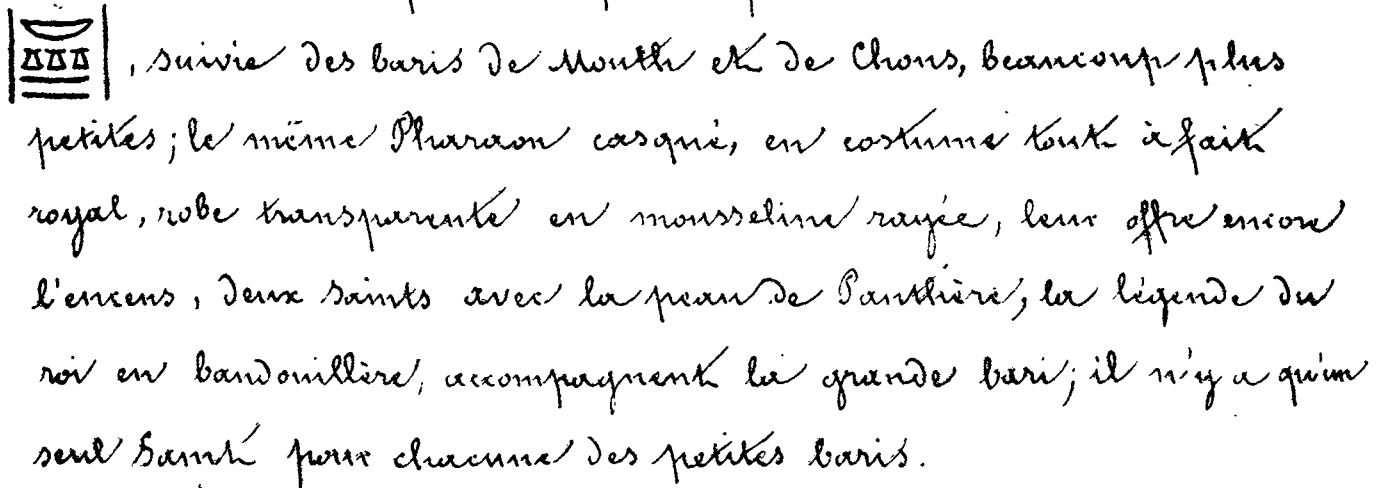 , suivie des baris de Mouth et de Chons, beaucoup plus
petites; le même Pharaon casqué, en costume tout à fait
royal, robe transparente en mousseline rayée, leur offre encore
l'encens, deux Saints avec la peau de Panthère, la légende du
roi en bandouillère, accompagnent la grande bari; il n'y a qu'un
seul Saint pour chacune des petites baris.